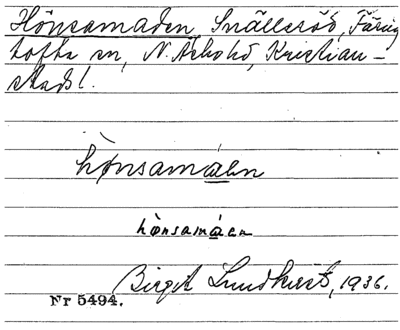 Hönsamaden, Snälleröd, Färing
tofta sn, N. Åsbohd, Kristian-
stads l.
hønsamáen
hònsamáen
Birgit Lundkvist, 1936.
Nr 5494.